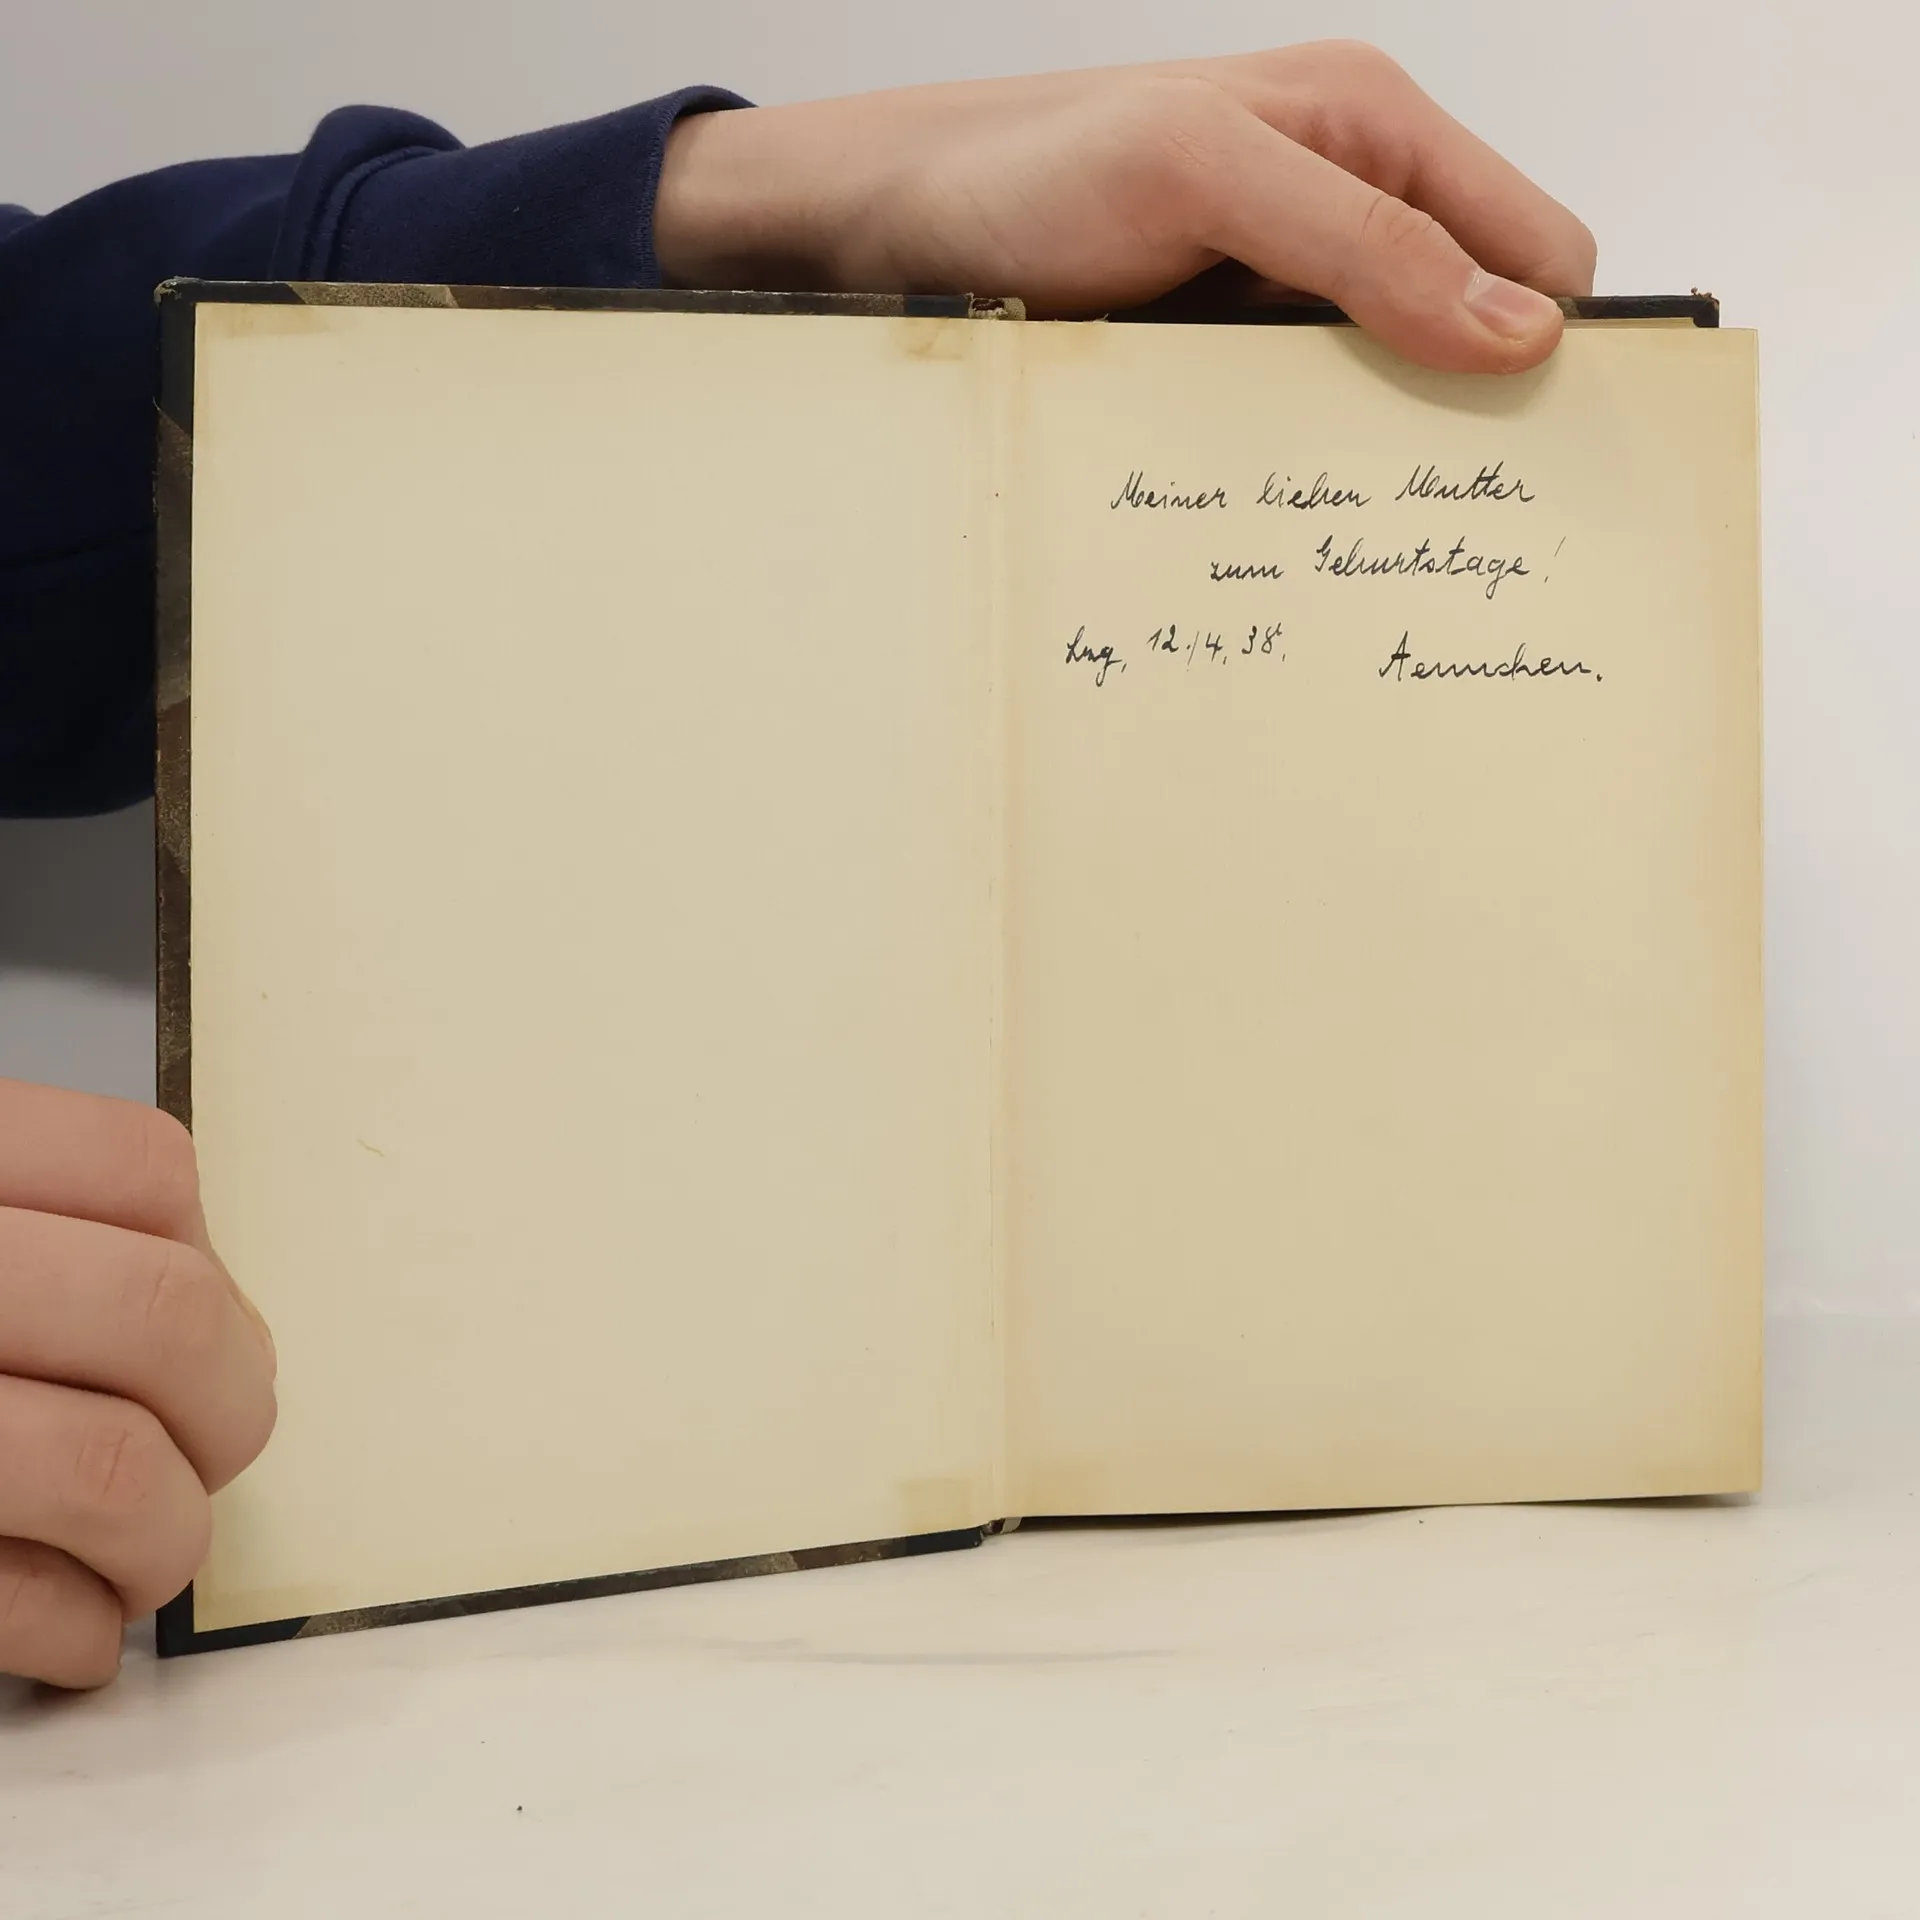 Meiner lieben Mutter
zum Geburtstage!
12./4. 38. Aennchen.